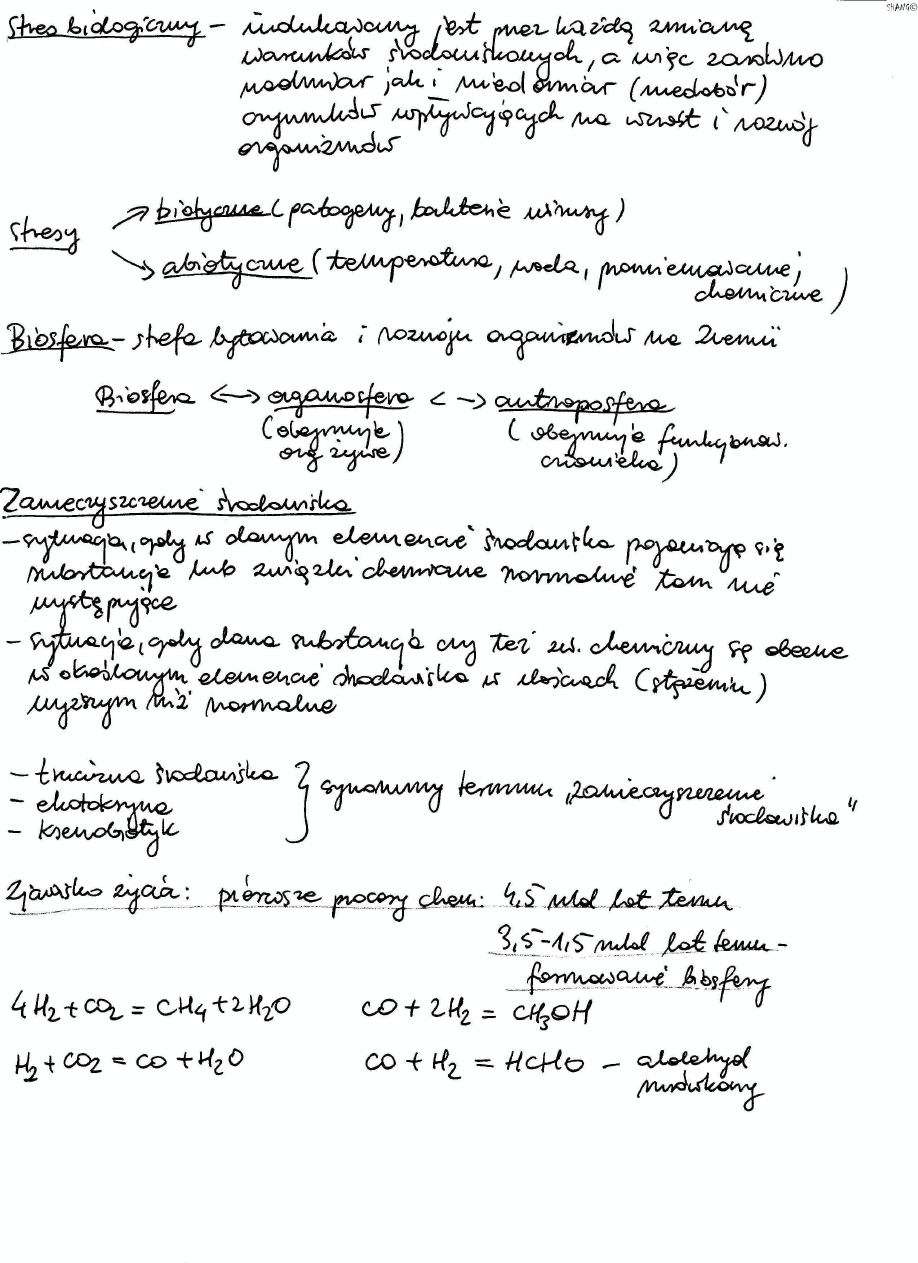 SHANG©
Stres biologiczny – indukowany jest przez każdą zmianę
warunków środowiskowych, a więc zarówno
nadmiar jak i niedomiar (niedobór)
czynników wpływających na wzrost i rozwój
organizmów
Stresy
biotyczne (patogeny, bakterie wirusy)
abiotyczne (temperatura, woda, promieniowanie,
chemiczne)
Biosfera – strefa bytowania i rozwoju organizmów na Ziemii
Biosfera <–> organosfera <–> antroposfera
(obejmuje (obejmuje funkcjonow.
org żywe) człowieka)
Zanieczyszczenie środowiska
– sytuacja, gdy w danym elemencie środowiska pojawiają się
substancje lub związki chemiczne normalnie tam nie
występujące
– sytuacja, gdy dana substancja czy też zw. chemiczny są obecne
w określonym elemencie środowiska w ilościach (stężeniu)
wyższym niż normalne
– trucizna środowiska
– ekotoksyna
– ksenobiotyk
} synonimy terminu „zanieczyszczenie
środowiska"
Zjawisko życia: pierwsze procesy chem: 4,5 mld lat temu
3,5–1,5 mld lat temu –
formowanie biosfery
4H₂ + CO₂ = CH₄ + 2H₂O CO + 2H₂ = CH₃OH
H₂ + CO₂ = CO + H₂O CO + H₂ = HCHO – aldehyd
mrówkowy